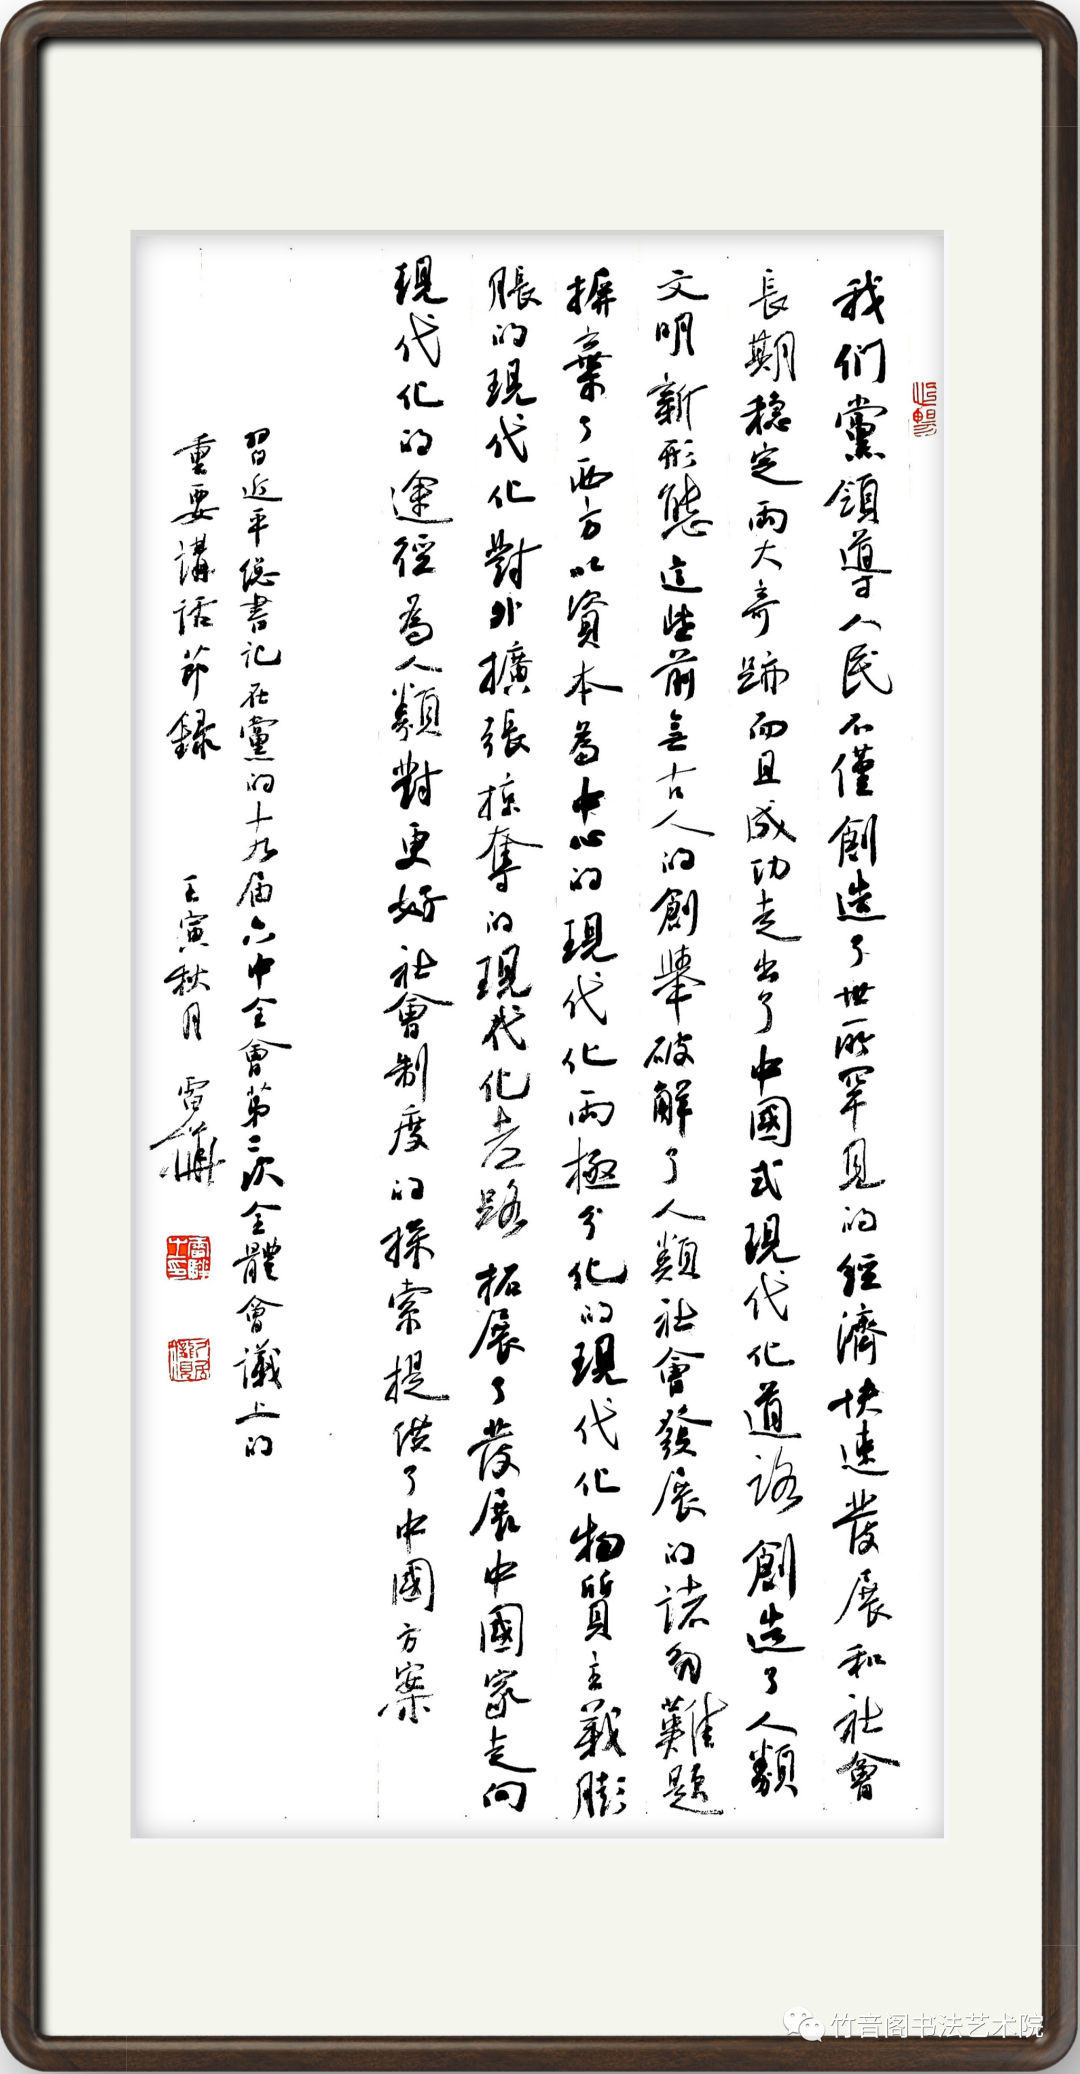 我们黨領導人民不僅創造了世所罕見的經濟快速發展和社會
長期穩定兩大奇跡而且成功走出了中國式現代化道路創造了人類
文明新形態這些前無古人的創舉破解了人類社會發展的諸多難題
摒棄了西方以資本為中心的現代化兩極分化的現代化物質主義膨
脹的現代化對外擴張掠奪的現代化老路拓展了發展中國家走向
現代化的途徑為人類對更好社會制度的探索提供了中國方案
習近平總書記在黨的十九屆六中全會第二次全體會議上的
重要講話節錄 壬寅秋月 雷
竹音阁书法艺术院